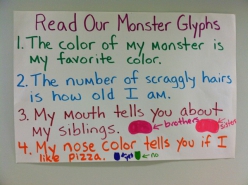 Read Our Monster Glyphs
1. The color of my monster is
my favorite color.
2. The number of scraggly hairs
is how old I am.
3. My Mouth tells you about
my siblings. brother sister
4. My nose color tells you if I
like pizza. yes no